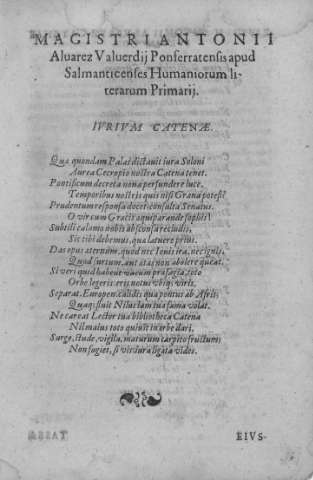 MAGISTRI ANTONII
Aluarez Valuerdij Ponferratensis apud
Salmanticenses Humaniorum li-
terarum Primarij.
IVRIVM CATENÆ.
Qua quondam Palas dictauit iura Soloni
Aurea Cecropio nostra Catena tenet.
Pontificum decreta noua persundere luce,
Temporibus nostris quis nisi Grana potest?
Prudentum responsa docet: consulta Senatus,
O vir cum Graijs aequiparande sophis!
Subtili calamo nobis absconsa recludis,
Sic tibi debemus, qua latuere prius.
Das opus aeternum, quod nec Iouis ira, nec ignis,
Quod furtum, aut aetas non abolere queat.
Si veri quid habent vatum praesagia, toto
Orbe legeris: eris notus vbiq; viris.
Separat Europen calidis qua pontus ab Afris;
Quaq; fluit Nilus tam tua fama volat.
Ne careat Lector tua bibliotheca Catena
Nil maius toto quiuit in orbe dari.
Surge, stude, vigila, maturum carpito fructum;
Non fugiet, si virtus ligata vides.
EIVS-